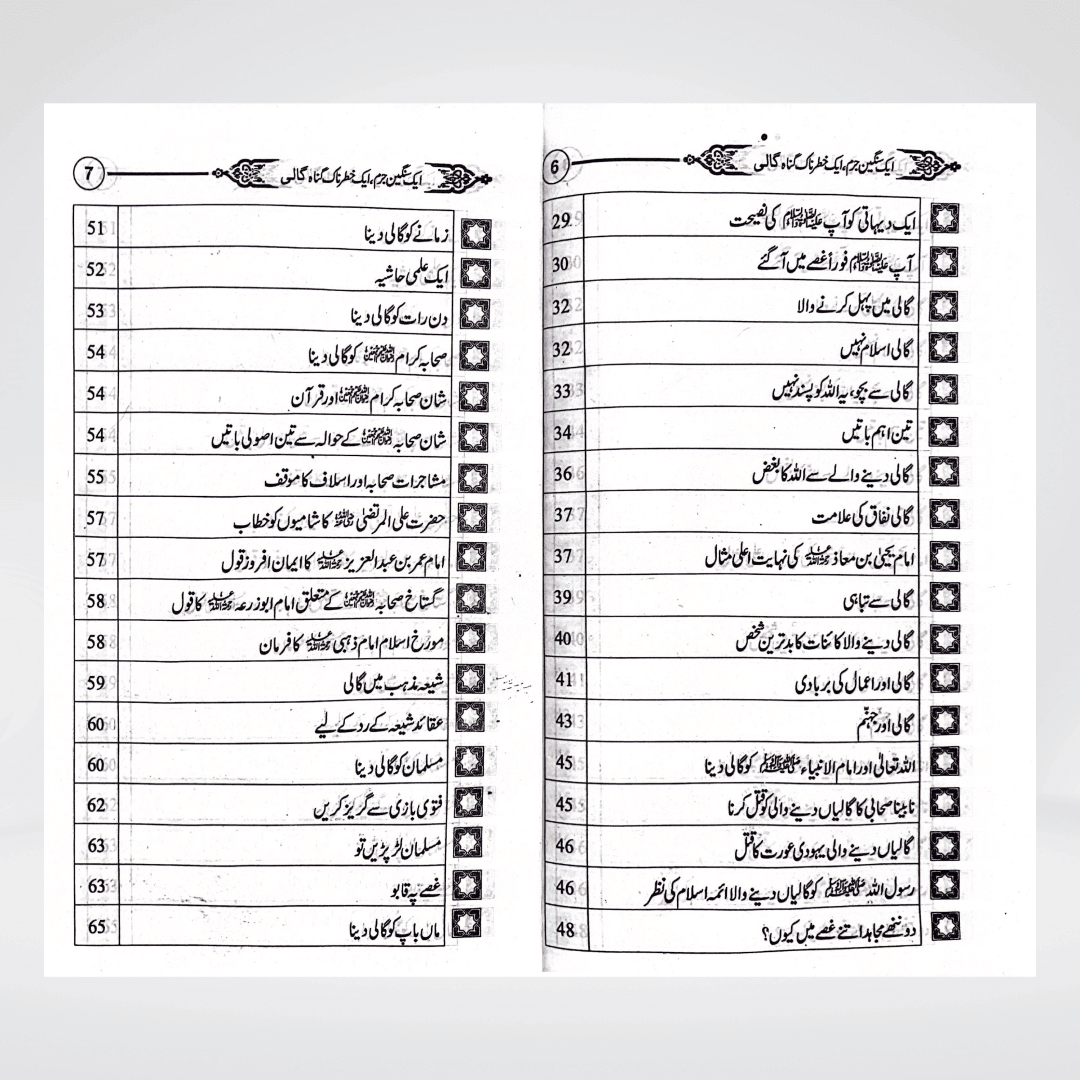 6 ایک سنگین جرم، ایک خطرناک گناہ گالی
ایک دیہاتی کو آپ ﷺ کی نصیحت 29
آپ ﷺ فوراً غصے میں آ گئے 30
گالی میں پہل کرنے والا 32
گالی اسلام نہیں 32
گالی سے بچو، یہ اللہ کو پسند نہیں 33
تین اہم باتیں 34
گالی دینے والے سے اللہ کا بغض 36
گالی نفاق کی علامت 37
امام یحییٰ بن معاذ رحمہ اللہ کی نہایت اعلیٰ مثال 37
گالی سے تباہی 39
گالی دینے والا کائنات کا بدترین شخص 40
گالی اور اعمال کی بربادی 41
گالی اور جہنّم 43
اللہ تعالیٰ اور امام الانبیاء ﷺ کو گالی دینا 45
نابینا صحابی کا گالیاں دینے والی کو قتل کرنا 45
گالیاں دینے والی یہودی عورت کا قتل 46
رسول اللہ ﷺ کو گالیاں دینے والا ائمہ اسلام کی نظر 46
دو ننھے مجاہد اتنے غصے میں کیوں؟ 48
7 ایک سنگین جرم، ایک خطرناک گناہ گالی
زمانے کو گالی دینا 51
ایک علمی حاشیہ 52
دن رات کو گالی دینا 53
صحابہ کرام رضی اللہ عنہم کو گالی دینا 54
شان صحابہ کرام رضی اللہ عنہم اور قرآن 54
شان صحابہ رضی اللہ عنہم کے حوالہ سے تین اصولی باتیں 54
مشاجرات صحابہ اور اسلاف کا موقف 55
حضرت علی المرتضیٰ رضی اللہ عنہ کا شامیوں کو خطاب 57
امام عمر بن عبدالعزیز رحمہ اللہ کا ایمان افروز قول 57
گستاخ صحابہ رضی اللہ عنہم کے متعلق امام ابوزرعہ رحمہ اللہ کا قول 58
مورخ اسلام امام ذہبی رحمہ اللہ کا فرمان 58
شیعہ مذہب میں گالی 59
عقائد شیعہ کے رد کے لیے 60
مسلمان کو گالی دینا 60
فتویٰ بازی سے گریز کریں 62
مسلمان لڑ پڑیں تو 63
غصے پہ قابو 63
ماں باپ کو گالی دینا 65